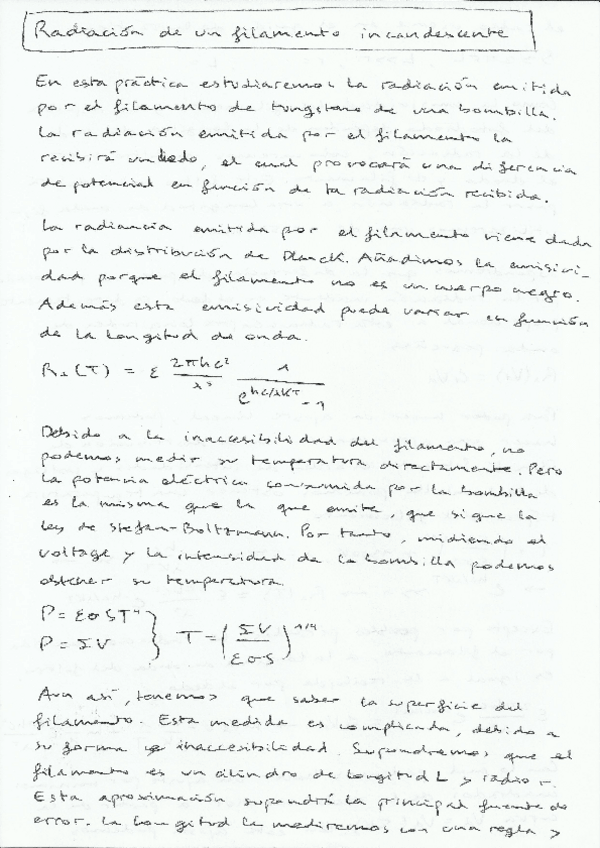 Radiación de un filamento incandescente
En esta práctica estudiaremos la radiación emitida
por el filamento de tungsteno de una bombilla.
La radiación emitida por el filamento la
recibirá un diodo, el cual provocará una diferencia
de potencial en función de la radiación recibida.
La radiancia emitida por el filamento viene dada
por la distribución de Planck. Añadimos la emisivi-
dad porque el filamento no es un cuerpo negro.
Además esta emisividad puede variar en función
de la longitud de onda.
R_λ(T) = ε 2πhc²/λ⁵ 1/(e^{hc/λKT} - 1)
Debido a la inaccesibilidad del filamento, no
podemos medir su temperatura directamente. Pero
la potencia eléctrica consumida por la bombilla
es la misma que la que emite, que sigue la
ley de Stefan-Boltzmann. Por tanto, midiendo el
voltage y la intensidad de la bombilla podemos
obtener su temperatura
P = εσST⁴
P = IV } T = (IV/εσS)^{1/4}
Aun así, tenemos que saber la superficie del
filamento. Esta medida es complicada, debido a
su forma e inaccesibilidad. Supondremos que el
filamento es un cilindro de longitud L y radio r.
Esta aproximación supondrá la principal fuente de
error. La longitud la mediremos con una regla y